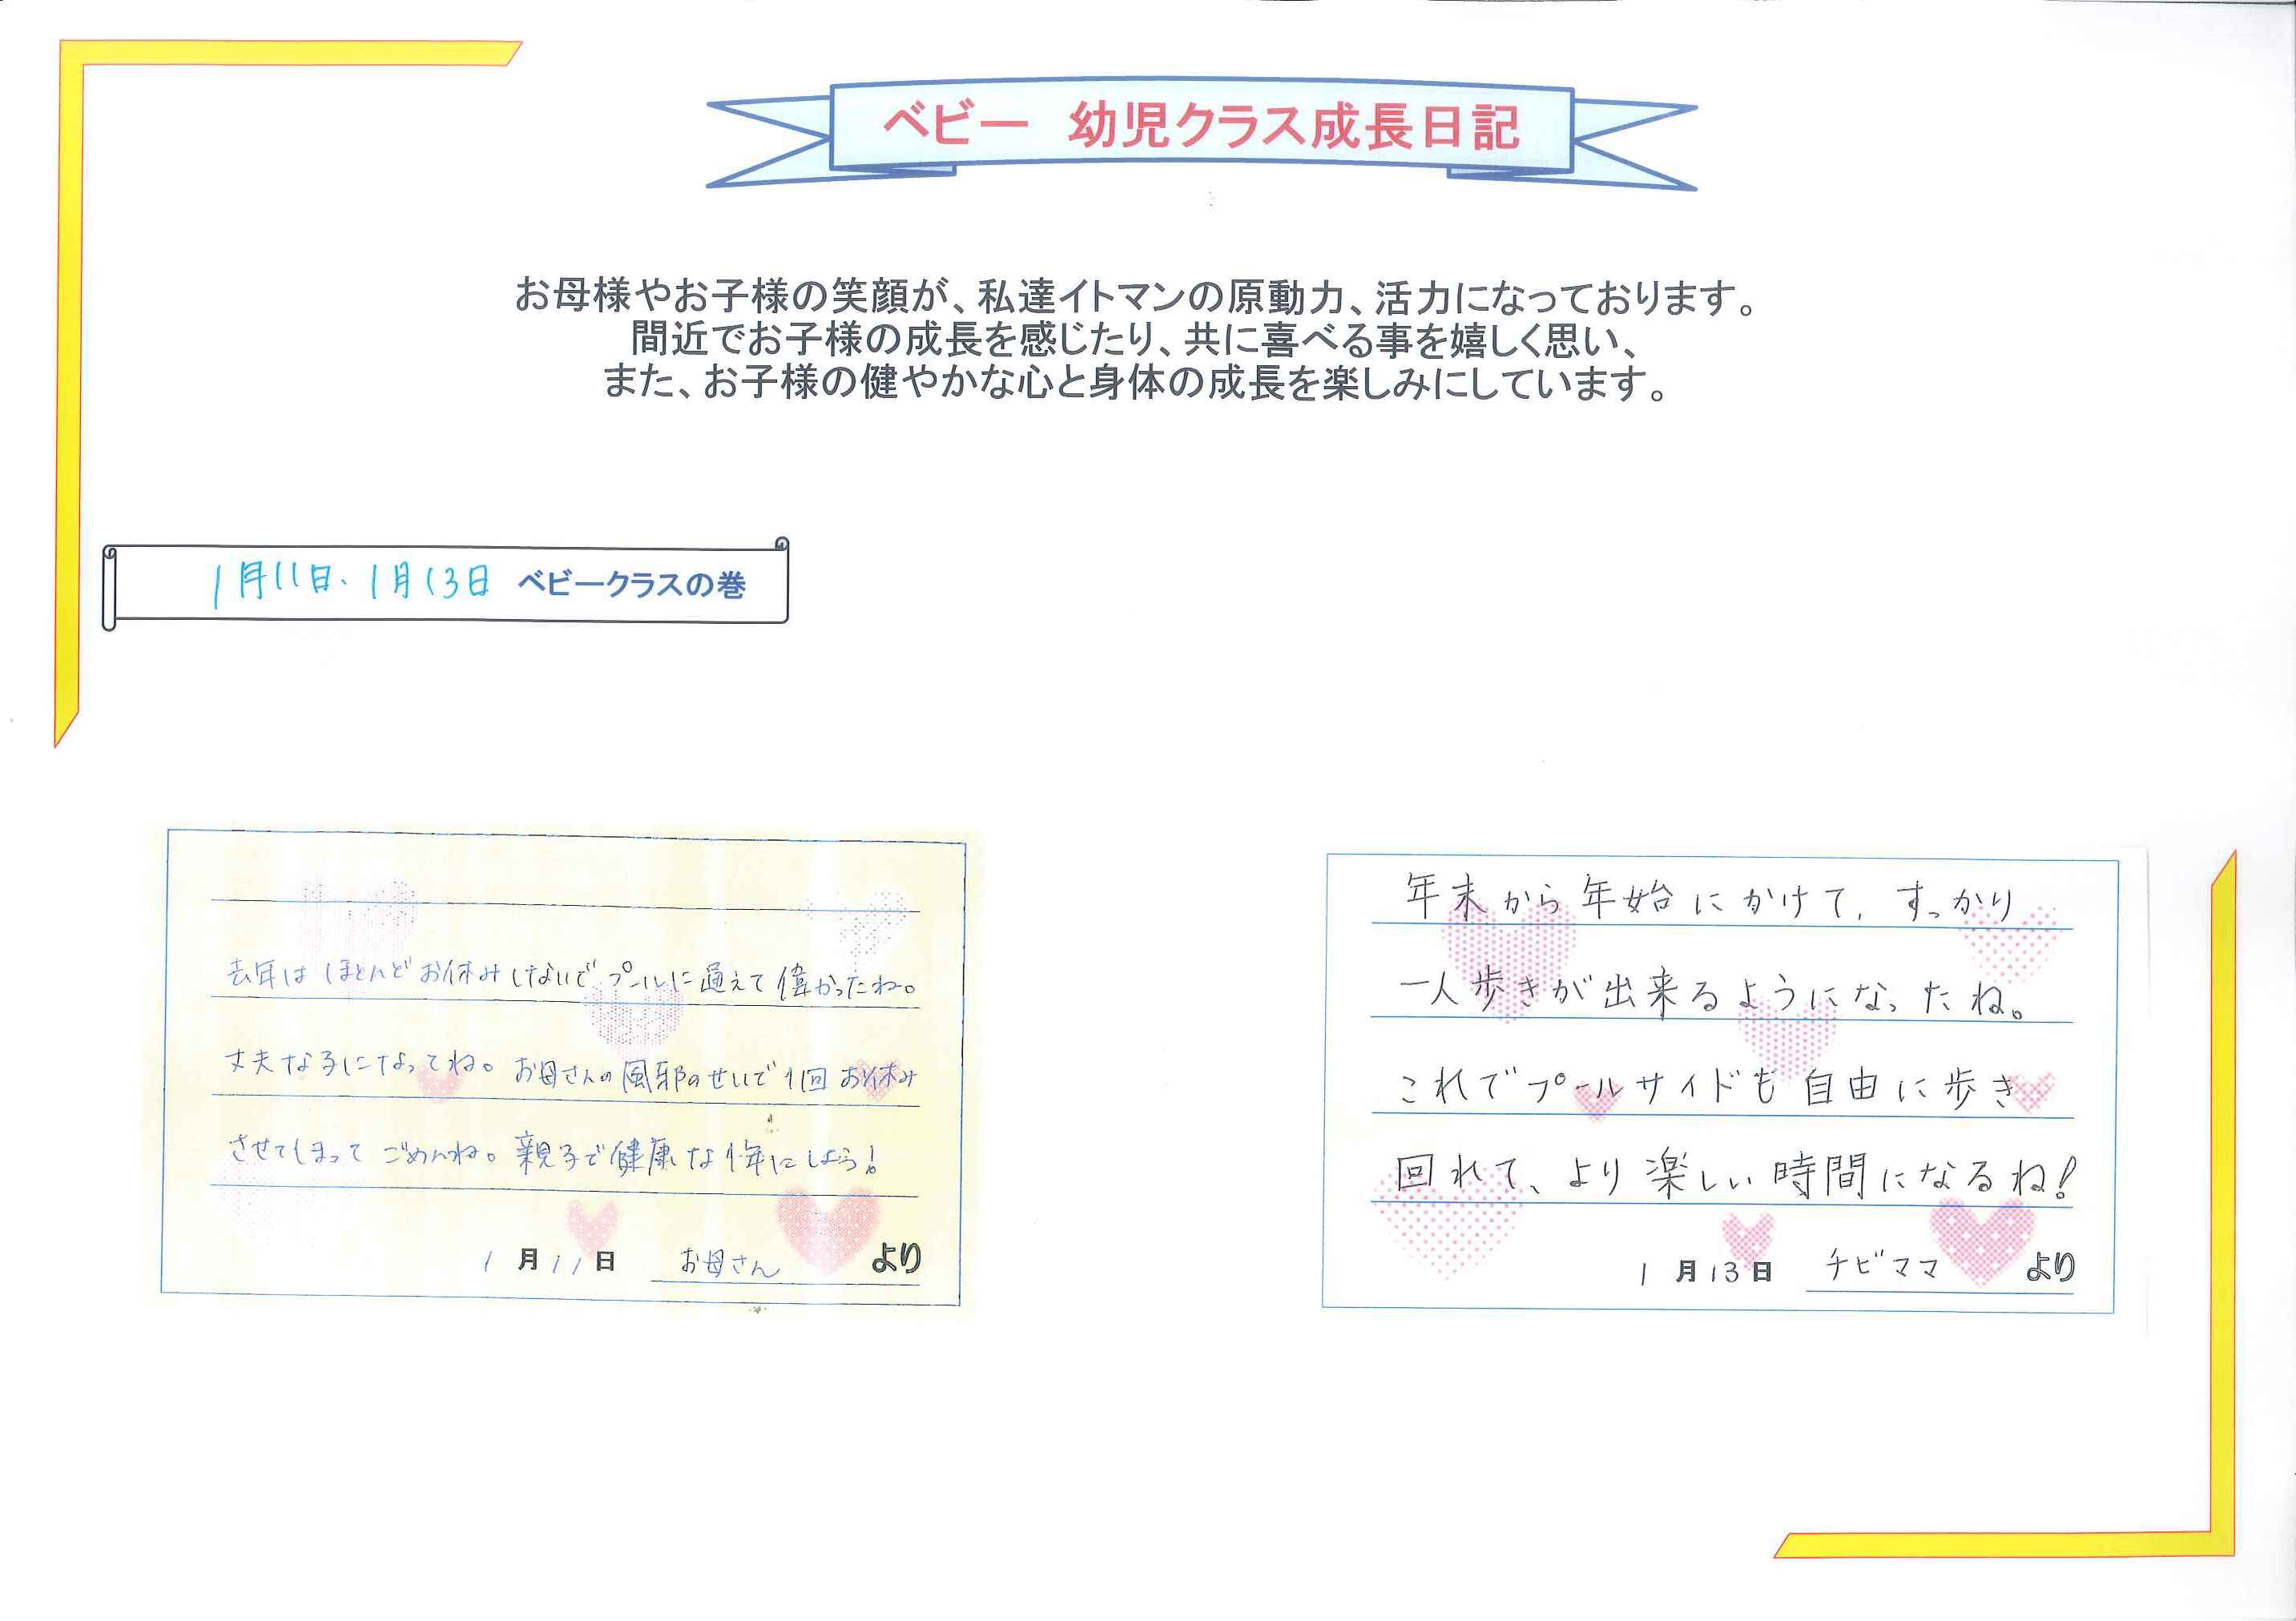 ベビー 幼児クラス成長日記
お母様やお子様の笑顔が、私達イトマンの原動力、活力になっております。
間近でお子様の成長を感じたり、共に喜べる事を嬉しく思い、
また、お子様の健やかな心と身体の成長を楽しみにしています。
1月11日、1月13日 ベビークラスの巻
去年はほとんどお休みしないでプールに通えて偉かったね。
丈夫な子になってね。お母さんの風邪のせいで1回お休み
させてしまってごめんね。親子で健康な1年にしよう!
1月11日 お母さん より
年末から年始にかけて、すっかり
一人歩きが出来るようになったね。
これでプールサイドも自由に歩き
回れて、より楽しい時間になるね!
1月13日 チビママ より